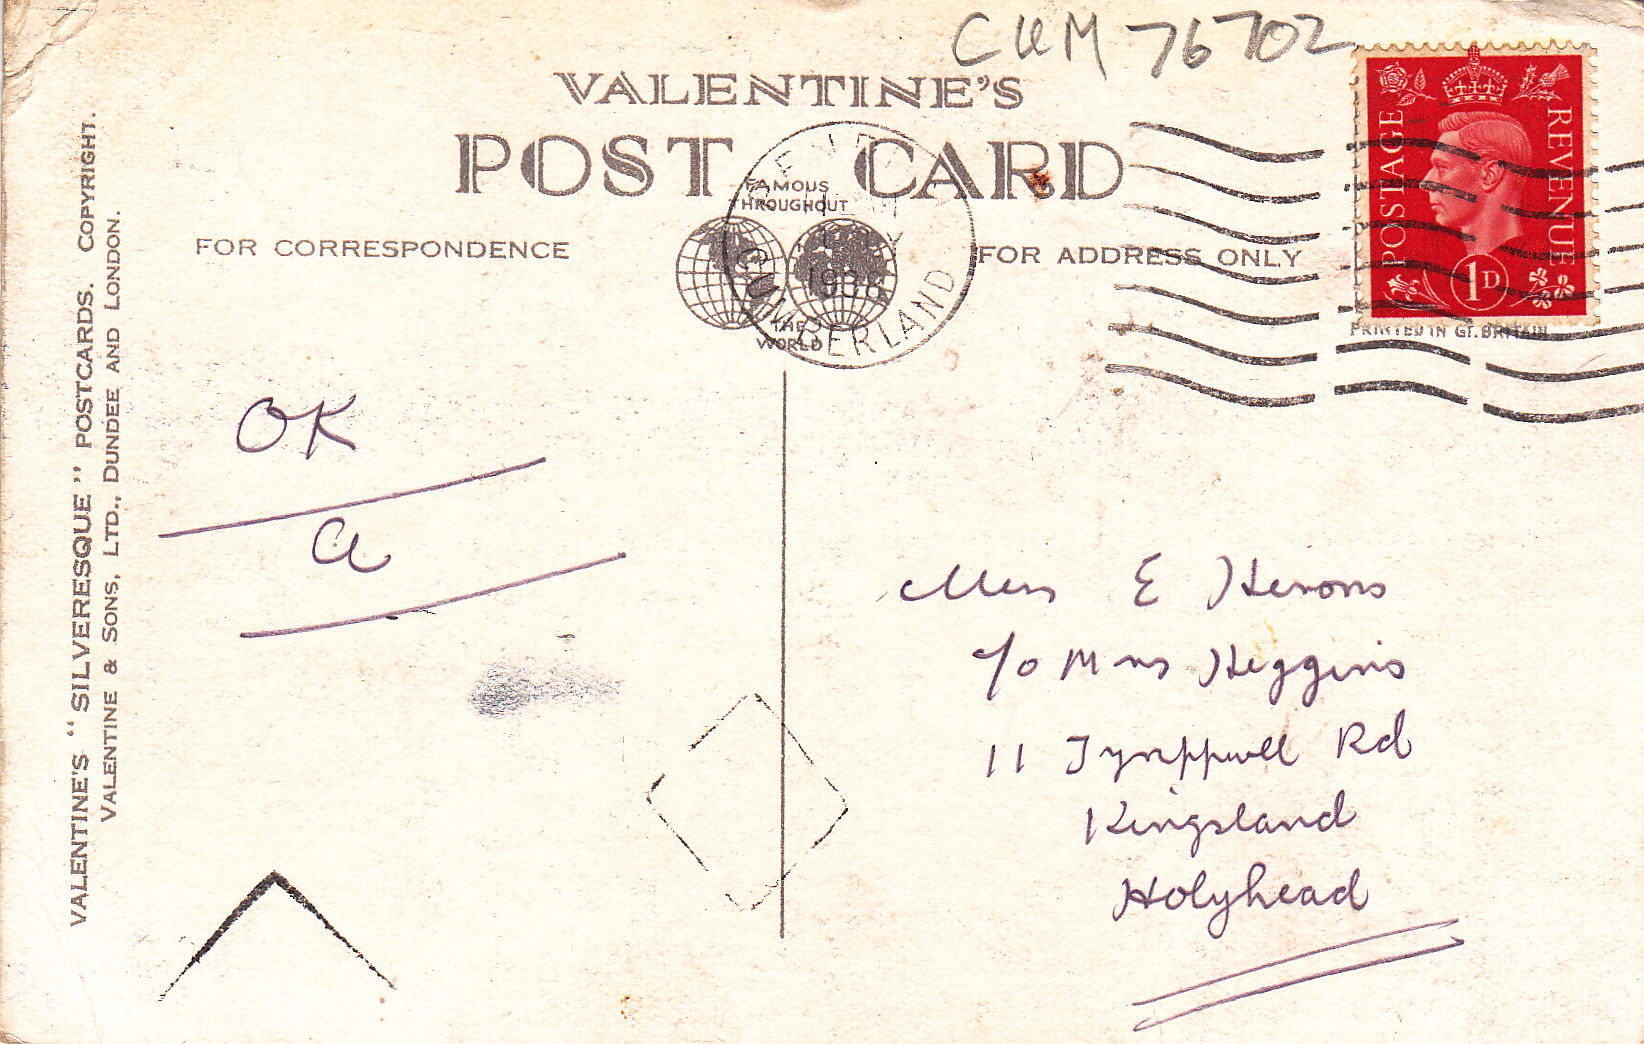 CUM 76702
VALENTINE'S
POST CARD
FAMOUS
THROUGHOUT
THE
WORLD
FOR CORRESPONDENCE
FOR ADDRESS ONLY
1938
CUMBERLAND
POSTAGE
REVENUE
1D
PRINTED IN GT. BRITAIN
VALENTINE'S "SILVERESQUE" POSTCARDS. COPYRIGHT.
VALENTINE & SONS, LTD., DUNDEE AND LONDON.
OK
a
E Herons
c/o Mrs Heggins
11 Rd
Kingsland
Holyhead